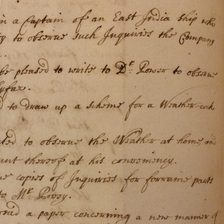 a Captain of an East India Ship who
to observe such Inquiries the Company
be pleased to write to Dr. Power to observe
to draw up a Scheme for a Weather
to observe the Weather at home
thereof at his conveniency.
copies of Inquiries for forraine parts
to Mr.
read a paper concerning a new manner of